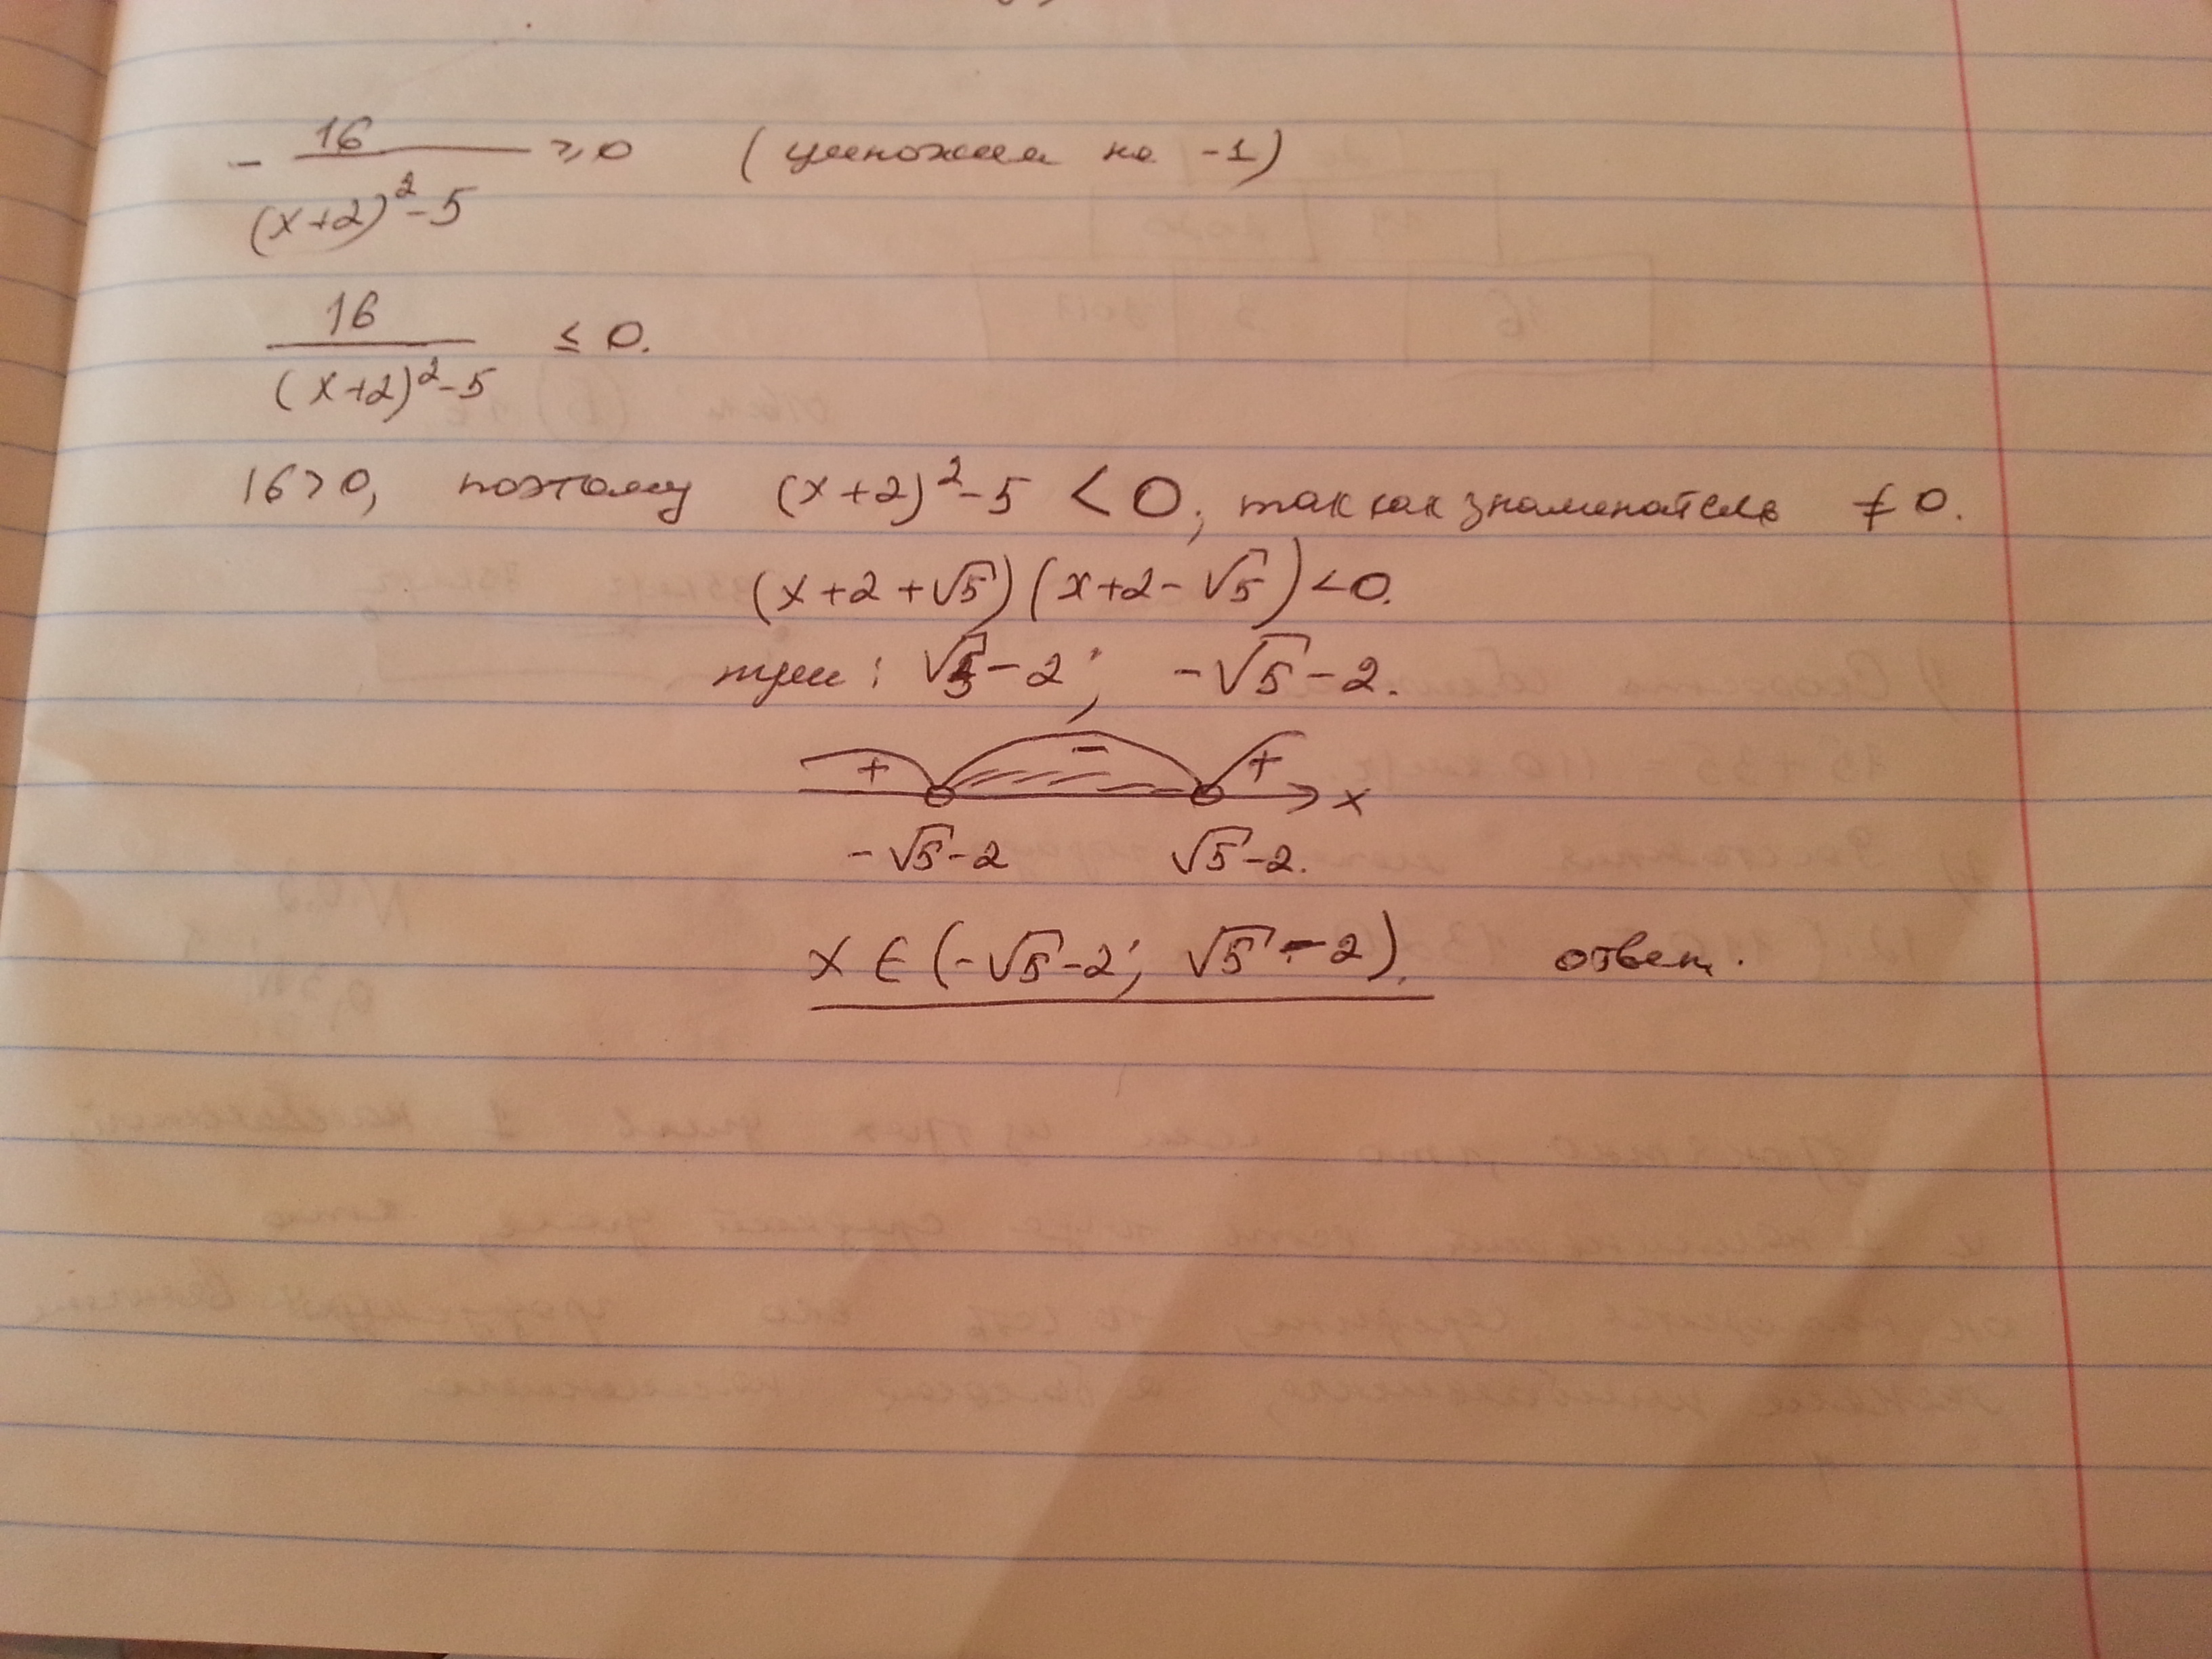 - 16/((x+2)²-5) ≥ 0 (умножим на -1)
16/((x+2)²-5) ≤ 0.
16>0, поэтому (x+2)²-5 < 0, так как знаменатель ≠ 0.
(x+2+√5)(x+2-√5)<0.
√5-2; -√5-2.
+ - + x
-√5-2 √5-2.
x ∈ (-√5-2; √5-2). ответ.